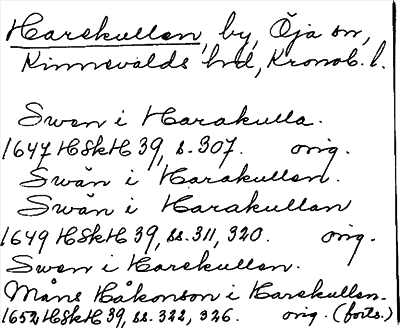 Harekullen, by, Öja sn,
Kinnevalds hd, Kronob. l.
Swen i Harakulla.
1647 HSkH 39, s. 307. orig.
Swän i Harakullen.
Swän i Harakullan
1649 HSkH 39, ss. 311, 320. orig.
Swen i Harekullen.
Måns Håkonson i Harekullen.
1652 HSkH 39, ss. 322, 326. orig. (forts.)